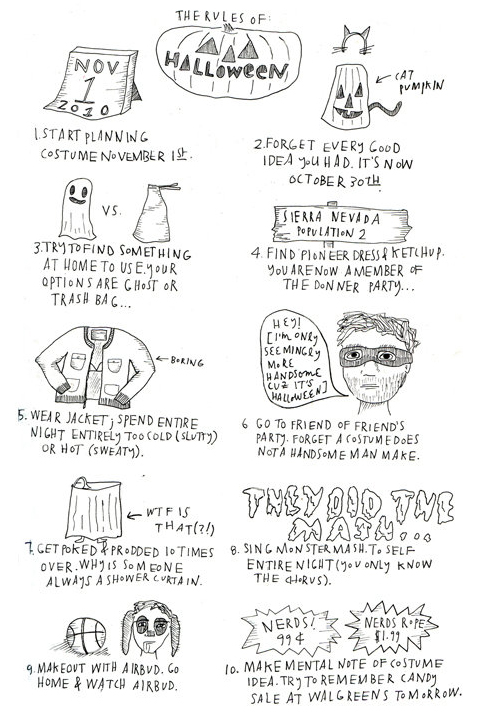 THE RULES OF:
HALLOWEEN
NOV
1
2010
1. START PLANNING
COSTUME NOVEMBER 1ST.
CAT
PUMPKIN
2. FORGET EVERY GOOD
IDEA YOU HAD. IT'S NOW
OCTOBER 30TH
VS.
3. TRY TO FIND SOMETHING
AT HOME TO USE. YOUR
OPTIONS ARE GHOST OR
TRASH BAG...
SIERRA NEVADA
POPULATION 2
4. FIND PIONEER DRESS & KETCHUP.
YOU ARE NOW A MEMBER OF
THE DONNER PARTY...
BORING
5. WEAR JACKET; SPEND ENTIRE
NIGHT ENTIRELY TOO COLD (SLUTTY)
OR HOT (SWEATY).
HEY!
[I'M ONLY
SEEMINGLY
MORE
HANDSOME
CUZ IT'S
HALLOWEEN]
6 GO TO FRIEND OF FRIEND'S
PARTY. FORGET A COSTUME DOES
NOT A HANDSOME MAN MAKE.
WTF IS
THAT(?!)
7. GET POKED & PRODDED 10 TIMES
OVER. WHY IS SOMEONE
ALWAYS A SHOWER CURTAIN.
THEY DID THE
MASH...
8. SING MONSTER MASH. TO SELF
ENTIRE NIGHT (YOU ONLY KNOW
THE CHORUS).
9. MAKEOUT WITH AIRBUD. GO
HOME & WATCH AIRBUD.
NERDS!
99¢
NERDS ROPE
$1.99
10. MAKE MENTAL NOTE OF COSTUME
IDEA. TRY TO REMEMBER CANDY
SALE AT WALGREENS TOMORROW.